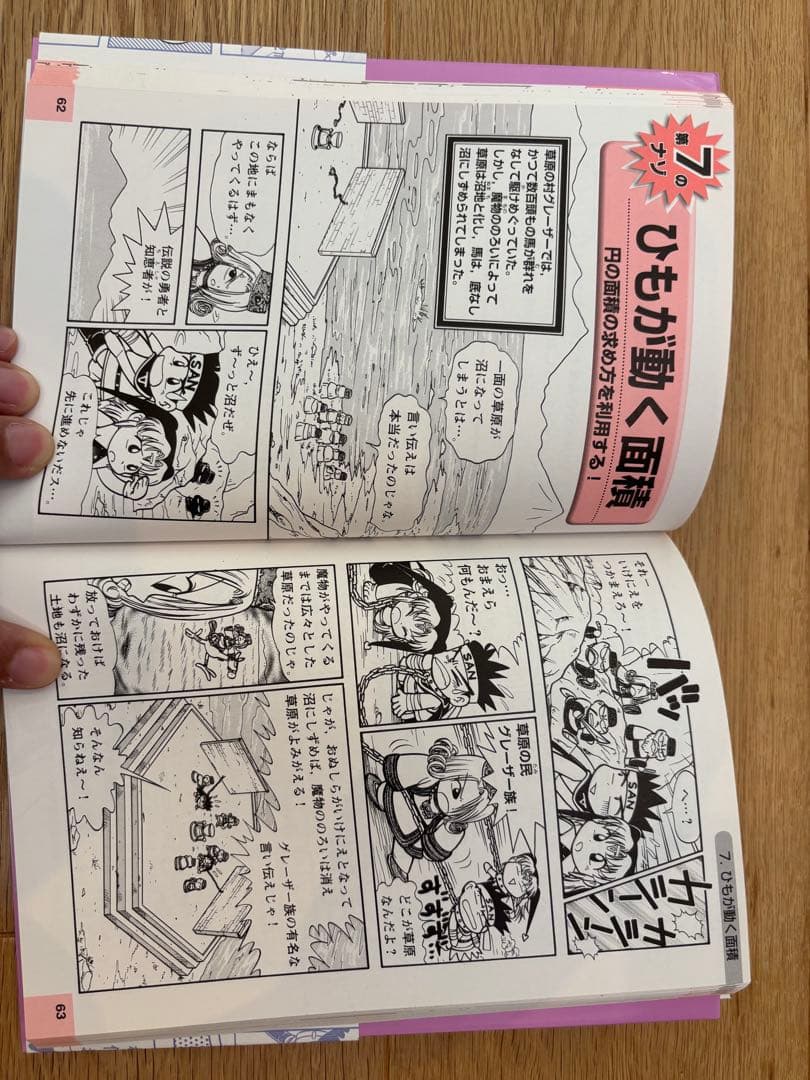 第7のナゾ
ひもが動く面積
円の面積の求め方を利用する！
草原の村グレーザーでは、
かつて数百頭もの馬が群れを
なして駆けめぐっていた。
しかし、魔物ののろいによって
草原は沼地と化し、馬は、底なし
沼にしずめられてしまった。
一面の草原が
沼になって
しまうとは…。
言い伝えは
本当だったのじゃな。
ならば
この地にまもなく
やってくるはず…。
伝説の勇者と
知恵者が！
ひえ〜
ず〜っと沼だぜ。
SAN
これじゃ
先に進めないだス…。
62
7. ひもが動く面積
それー
いけにえを
つかまえろ〜！
バッ
へ…？
SAN
カシーン
カシーン
おっ…
おまえら
何もんだ〜？
SAN
草原の民
グレーザー族！
SAN
ずずず…
どこが草原
なんだよ？
魔物がやってくる
までは広々とした
草原だったのじゃ。
放っておけば
わずかに残った
土地も沼になる。
じゃが、おぬしらがいけにえとなって
沼にしずめば、魔物ののろいは消え
草原がよみがえる！
グレーザー族の有名な
言い伝えじゃ！
そんなん
知らねえ〜！
63